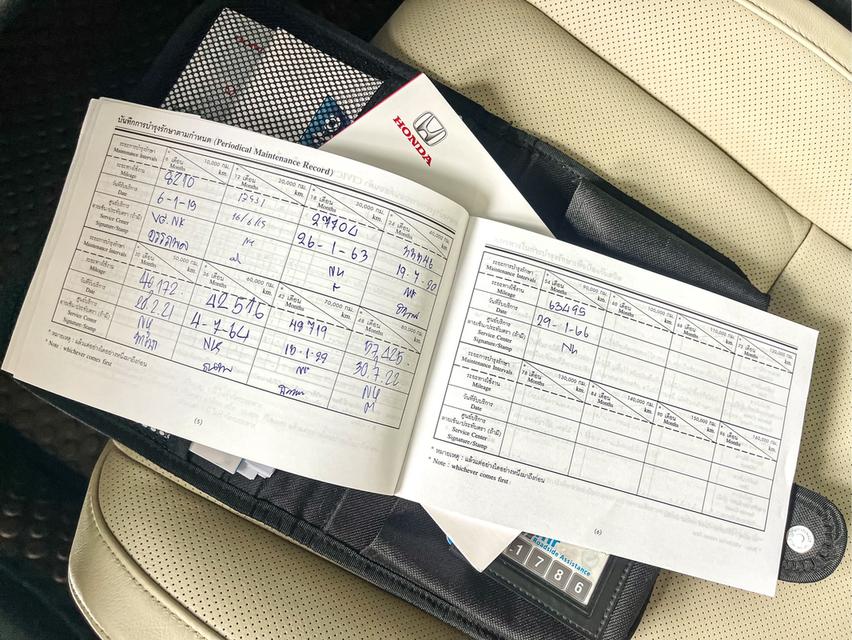 HONDA
บันทึกการบำรุงรักษาตามกำหนด (Periodical Maintenance Record)
ระยะการบำรุงรักษา Maintenance Intervals
6 เดือน Months 10,000 กม. km.
12 เดือน Months 20,000 กม. km.
* 18 เดือน Months 30,000 กม. km.
24 เดือน Months 40,000 กม. km.
ระยะทางใช้งาน Mileage 8210 29704 33546
วันที่รับบริการ Date 6-1-19 16/6/19 26-1-63
ศูนย์บริการ Service Center NK NK
ลายเซ็น/ประทับตรา (ถ้ามี) Signature/Stamp
ระยะการบำรุงรักษา Maintenance Intervals
30 เดือน Months 50,000 กม. km.
36 เดือน Months 60,000 กม. km.
42 เดือน Months 70,000 กม. km.
48 เดือน Months 80,000 กม. km.
ระยะทางใช้งาน Mileage 40172 42516 49719 57425
วันที่รับบริการ Date 4-7-64 30 7.22
ศูนย์บริการ Service Center NK NK NK NK
ลายเซ็น/ประทับตรา (ถ้ามี) Signature/Stamp
* หมายเหตุ : แล้วแต่อย่างใดอย่างหนึ่งมาถึงก่อน
* Note : whichever comes first
(5)
ระยะการบำรุงรักษา Maintenance Intervals
54 เดือน Months 90,000 กม. km.
60 เดือน Months 100,000 กม. km.
66 เดือน Months 110,000 กม. km.
72 เดือน Months 120,000 กม. km.
ระยะทางใช้งาน Mileage 63495
วันที่รับบริการ Date 29-1-66
ศูนย์บริการ Service Center NK
ลายเซ็น/ประทับตรา (ถ้ามี) Signature/Stamp
ระยะการบำรุงรักษา Maintenance Intervals
78 เดือน Months 130,000 กม. km.
84 เดือน Months 140,000 กม. km.
90 เดือน Months 150,000 กม. km.
96 เดือน Months 160,000 กม. km.
ระยะทางใช้งาน Mileage
วันที่รับบริการ Date
ศูนย์บริการ Service Center
ลายเซ็น/ประทับตรา (ถ้ามี) Signature/Stamp
* หมายเหตุ : แล้วแต่อย่างใดอย่างหนึ่งมาถึงก่อน
* Note : whichever comes first
(6)
Roadside Assistance
1 7 8 6